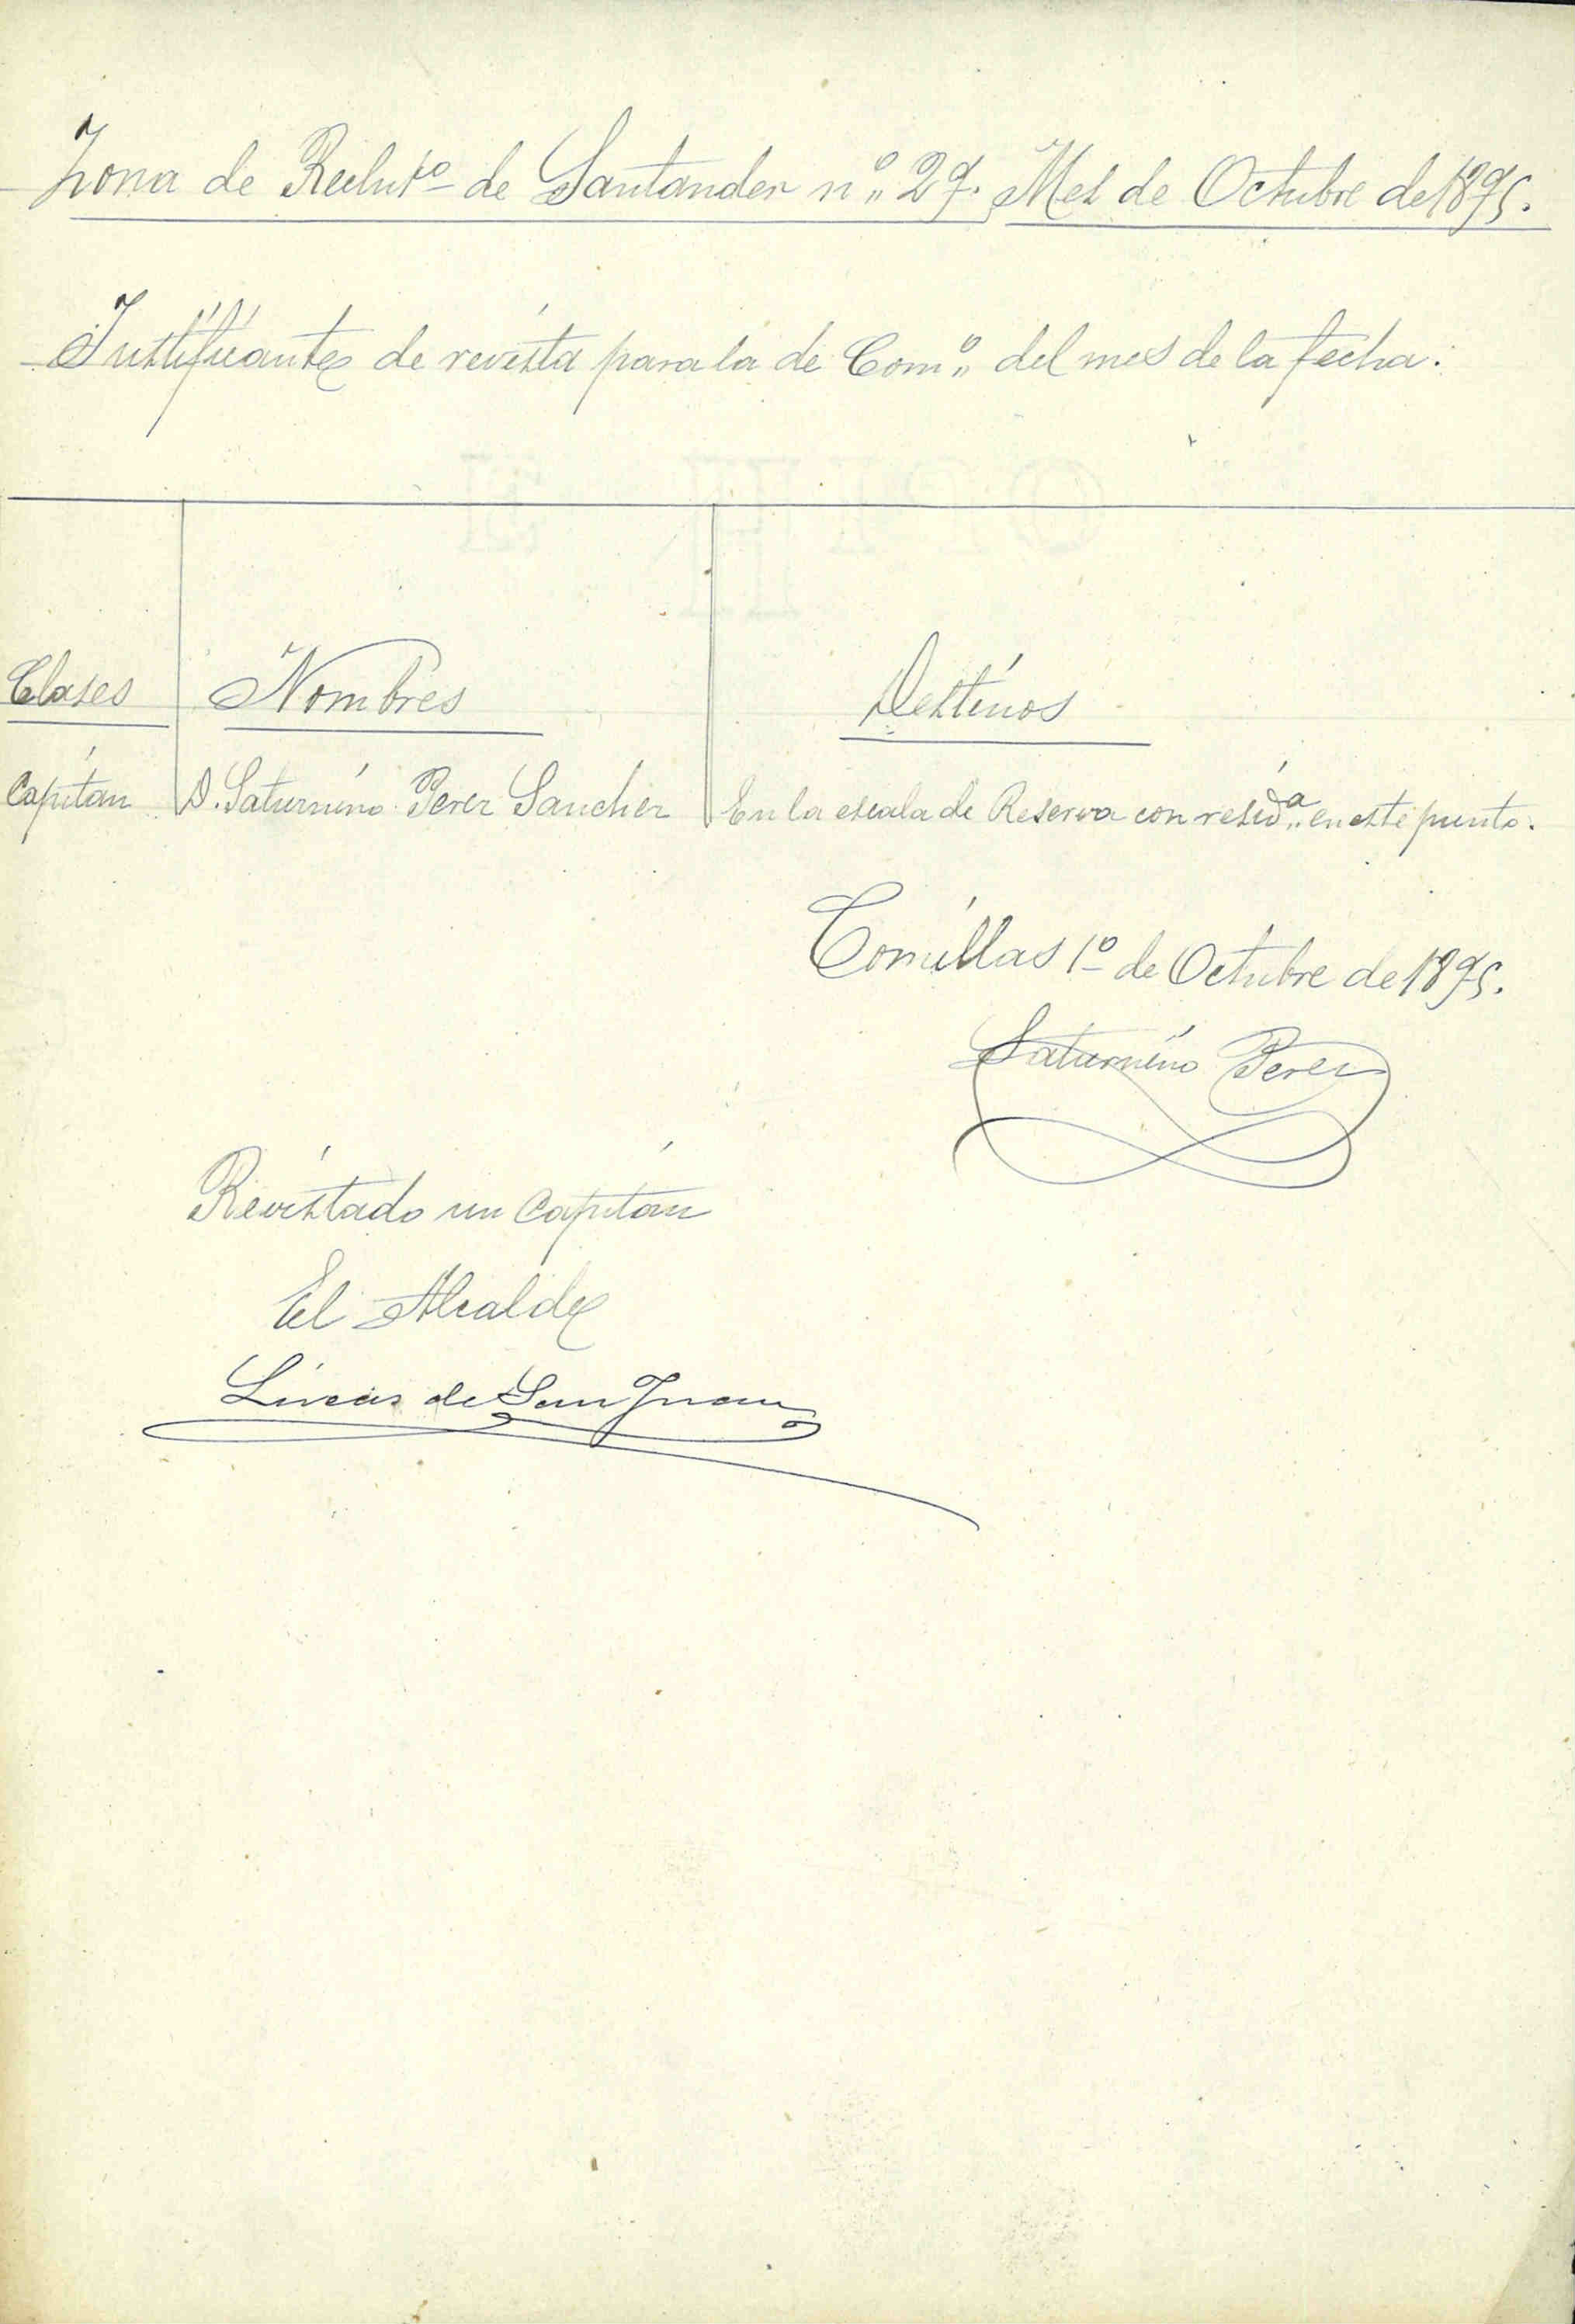 Zona de Reclutº de Santander nº 29. Mes de Octubre de 1895.
Justificante de revista para la de Comº del mes de la fecha.
Clases Nombres Destinos
Capitan D. Saturnino Perez Sanchez En la escala de Reserva con residª en este punto.
Comillas 1º de Octubre de 1895.
Saturnino Perez
Revistado un Capitan
El Alcalde
Lucas de San Juan